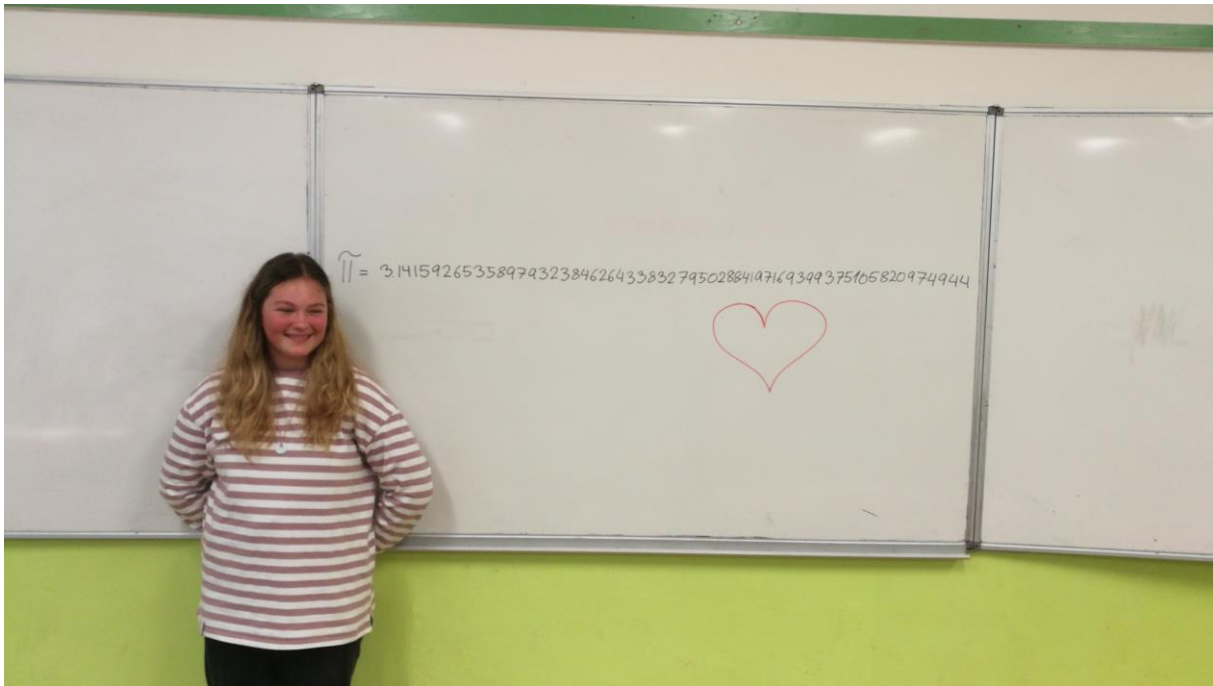 π = 3.141592653589793238462643383279502884197169399375105820974944